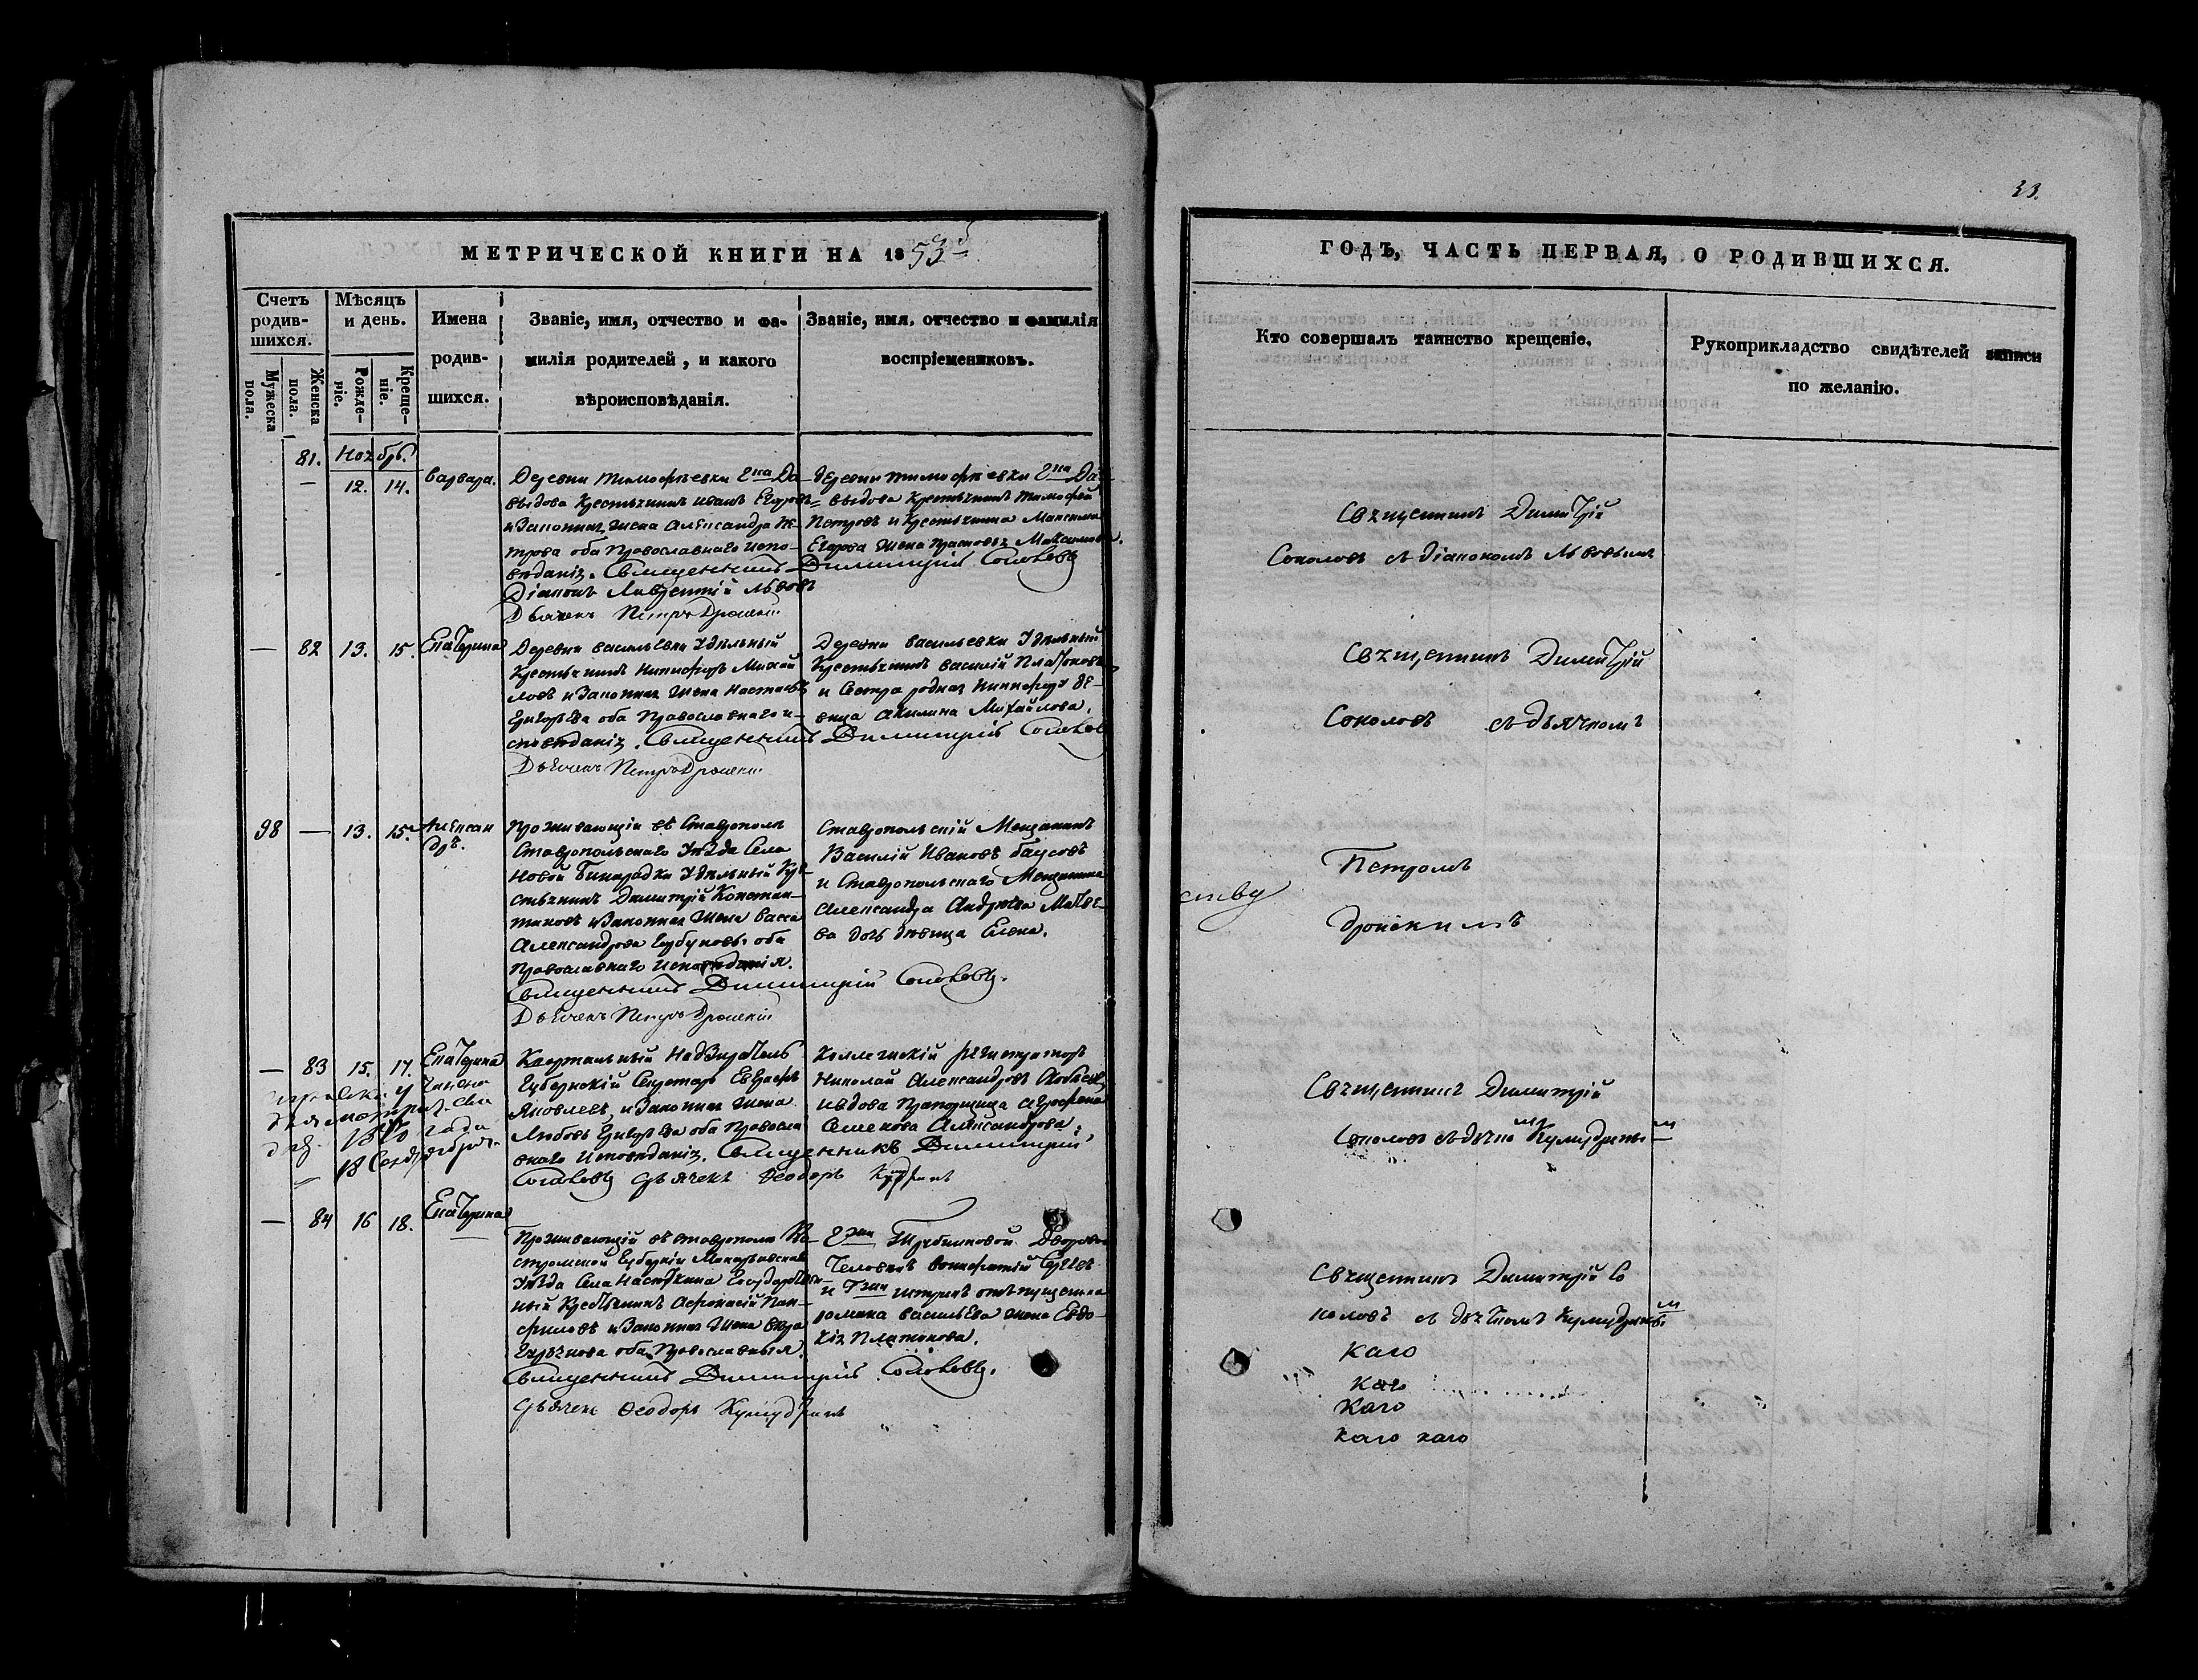 33.
МЕТРИЧЕСКОЙ КНИГИ НА 1853й
Счетъ родив-шихся.
Мужеска пола.
Женска пола.
Мѣсяцъ и день.
Рожде-ніе.
Креще-ніе.
Имена родив-шихся.
Званіе, имя, отчество и фа-
милія родителей, и какого
вѣроисповѣданія.
Званіе, имя, отчество и фамилія
воспріемниковъ.
81. Ноябрь.
— 12. 14. Варвара.
Деревни Тимофѣевки Гна Да-
выдова Крестьянинъ Иванъ Егоровъ
и Законная жена Александра Пе-
трова оба Православнаго испо-
вѣданія. Священникъ Димитрій Соколовъ
Діаконъ Лаврентій Львовъ
Дьячекъ Петръ
Деревни Тимофѣевки Гна Да-
выдова Крестьянинъ Тимофей
Петровъ и Крестьянина Максима
Егорова жена Максимова.
— 82 13. 15. Екатерина
Деревни Васильевки Удѣльный
Крестьянинъ Никифоръ Михай
ловъ и Законная жена Настасья
Григорьева оба Православнаго и-
сповѣданія. Священникъ Димитрій Соколовъ
Дьячекъ Петръ
Деревни Васильевки Удѣльный
Крестьянинъ Василій Платоновъ
и Сестра родная Никифора дѣ-
вица Акилина Михайлова.
98 — 13. 15. Алексан
дръ.
Проживающій въ Ставрополѣ
Ставропольскаго Уѣзда Села
Новой Бинарадки Удѣльный Кре-
стьянинъ Димитрій Констан-
тиновъ и Законная жена Васса
Александрова оба
Православнаго исповѣданія.
Священникъ Димитрій Соколовъ.
Дьячекъ Петръ
Ставропольскій Мещанинъ
Василій Ивановъ
и Ставропольскаго Мещанина
Александра Андреева Матвѣе-
ва дочь дѣвица Елена.
— 83 15. 17. Екатерина
Квартальный Надзиратель
Губернскій Секретарь Евграфъ
Яковлевъ, и Законная жена
Любовь Григорьева оба Правосла
внаго исповѣданія. Священникъ Димитрій
Соколовъ Дьячекъ Ѳеодоръ
Коллежскій регистраторъ
Николай Александровъ
и вдова Прапорщица Аграфена
Семенова Александрова.
— 84 16 18. Екатерина
Проживающій въ Ставрополѣ Ко-
стромской Губерніи Макарьевскаго
Уѣзда Села Государствен-
ный Крестьянинъ Афонасій Пан-
филовъ и Законная жена
оба Православныя.
Священникъ Димитрій Соколовъ.
Дьячекъ Ѳеодоръ Кумудринъ
Гжи Дворовой
Человѣкъ Вонифатій Сергѣевъ
и Гжи отпущенна
романа Васильева жена Евдо-
кія Платонова.
ГОДЪ, ЧАСТЬ ПЕРВАЯ, О РОДИВШИХСЯ.
Кто совершалъ таинство крещеніе.
Рукоприкладство свидѣтелей записи
по желанію.
Священникъ Димитрій
Соколовъ съ діакономъ Львовымъ
Священникъ Димитрій
Соколовъ съ дьячкомъ
Петромъ
ству
Священникъ Димитрій
Соколовъ съ дьячко Кумудринымъ
Священникъ Димитрій Со
коловъ съ дьячкомъ Кумудринымъ
каго
каго
каго
каго каго